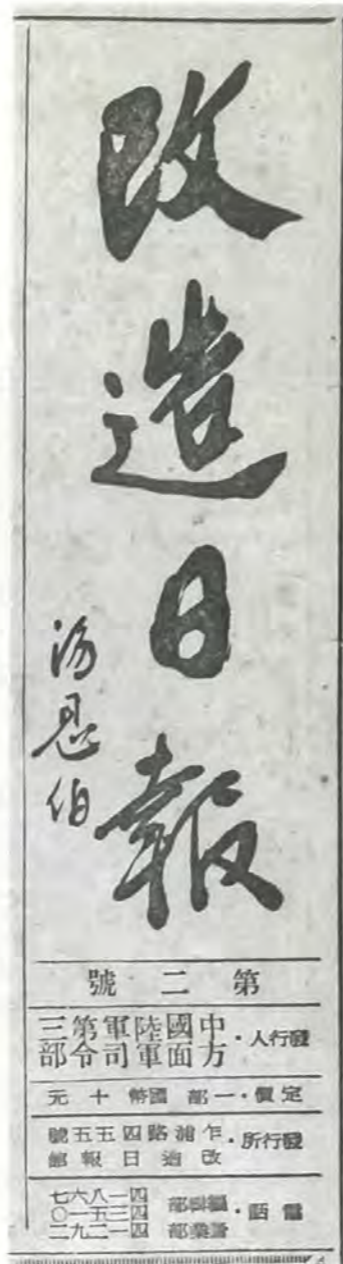 改造日報
湯恩伯
第二號
發行人・中國陸軍第三
方面軍司令部
定價・一部 國幣十元
發行所・乍浦路四五五號
改造日報館
電話・編輯部 四一八六七
四三五一〇
營業部 四一二九二